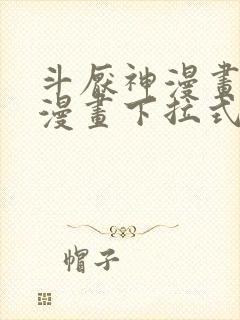 斗厭神漫畫
漫畫下拉式
帽子